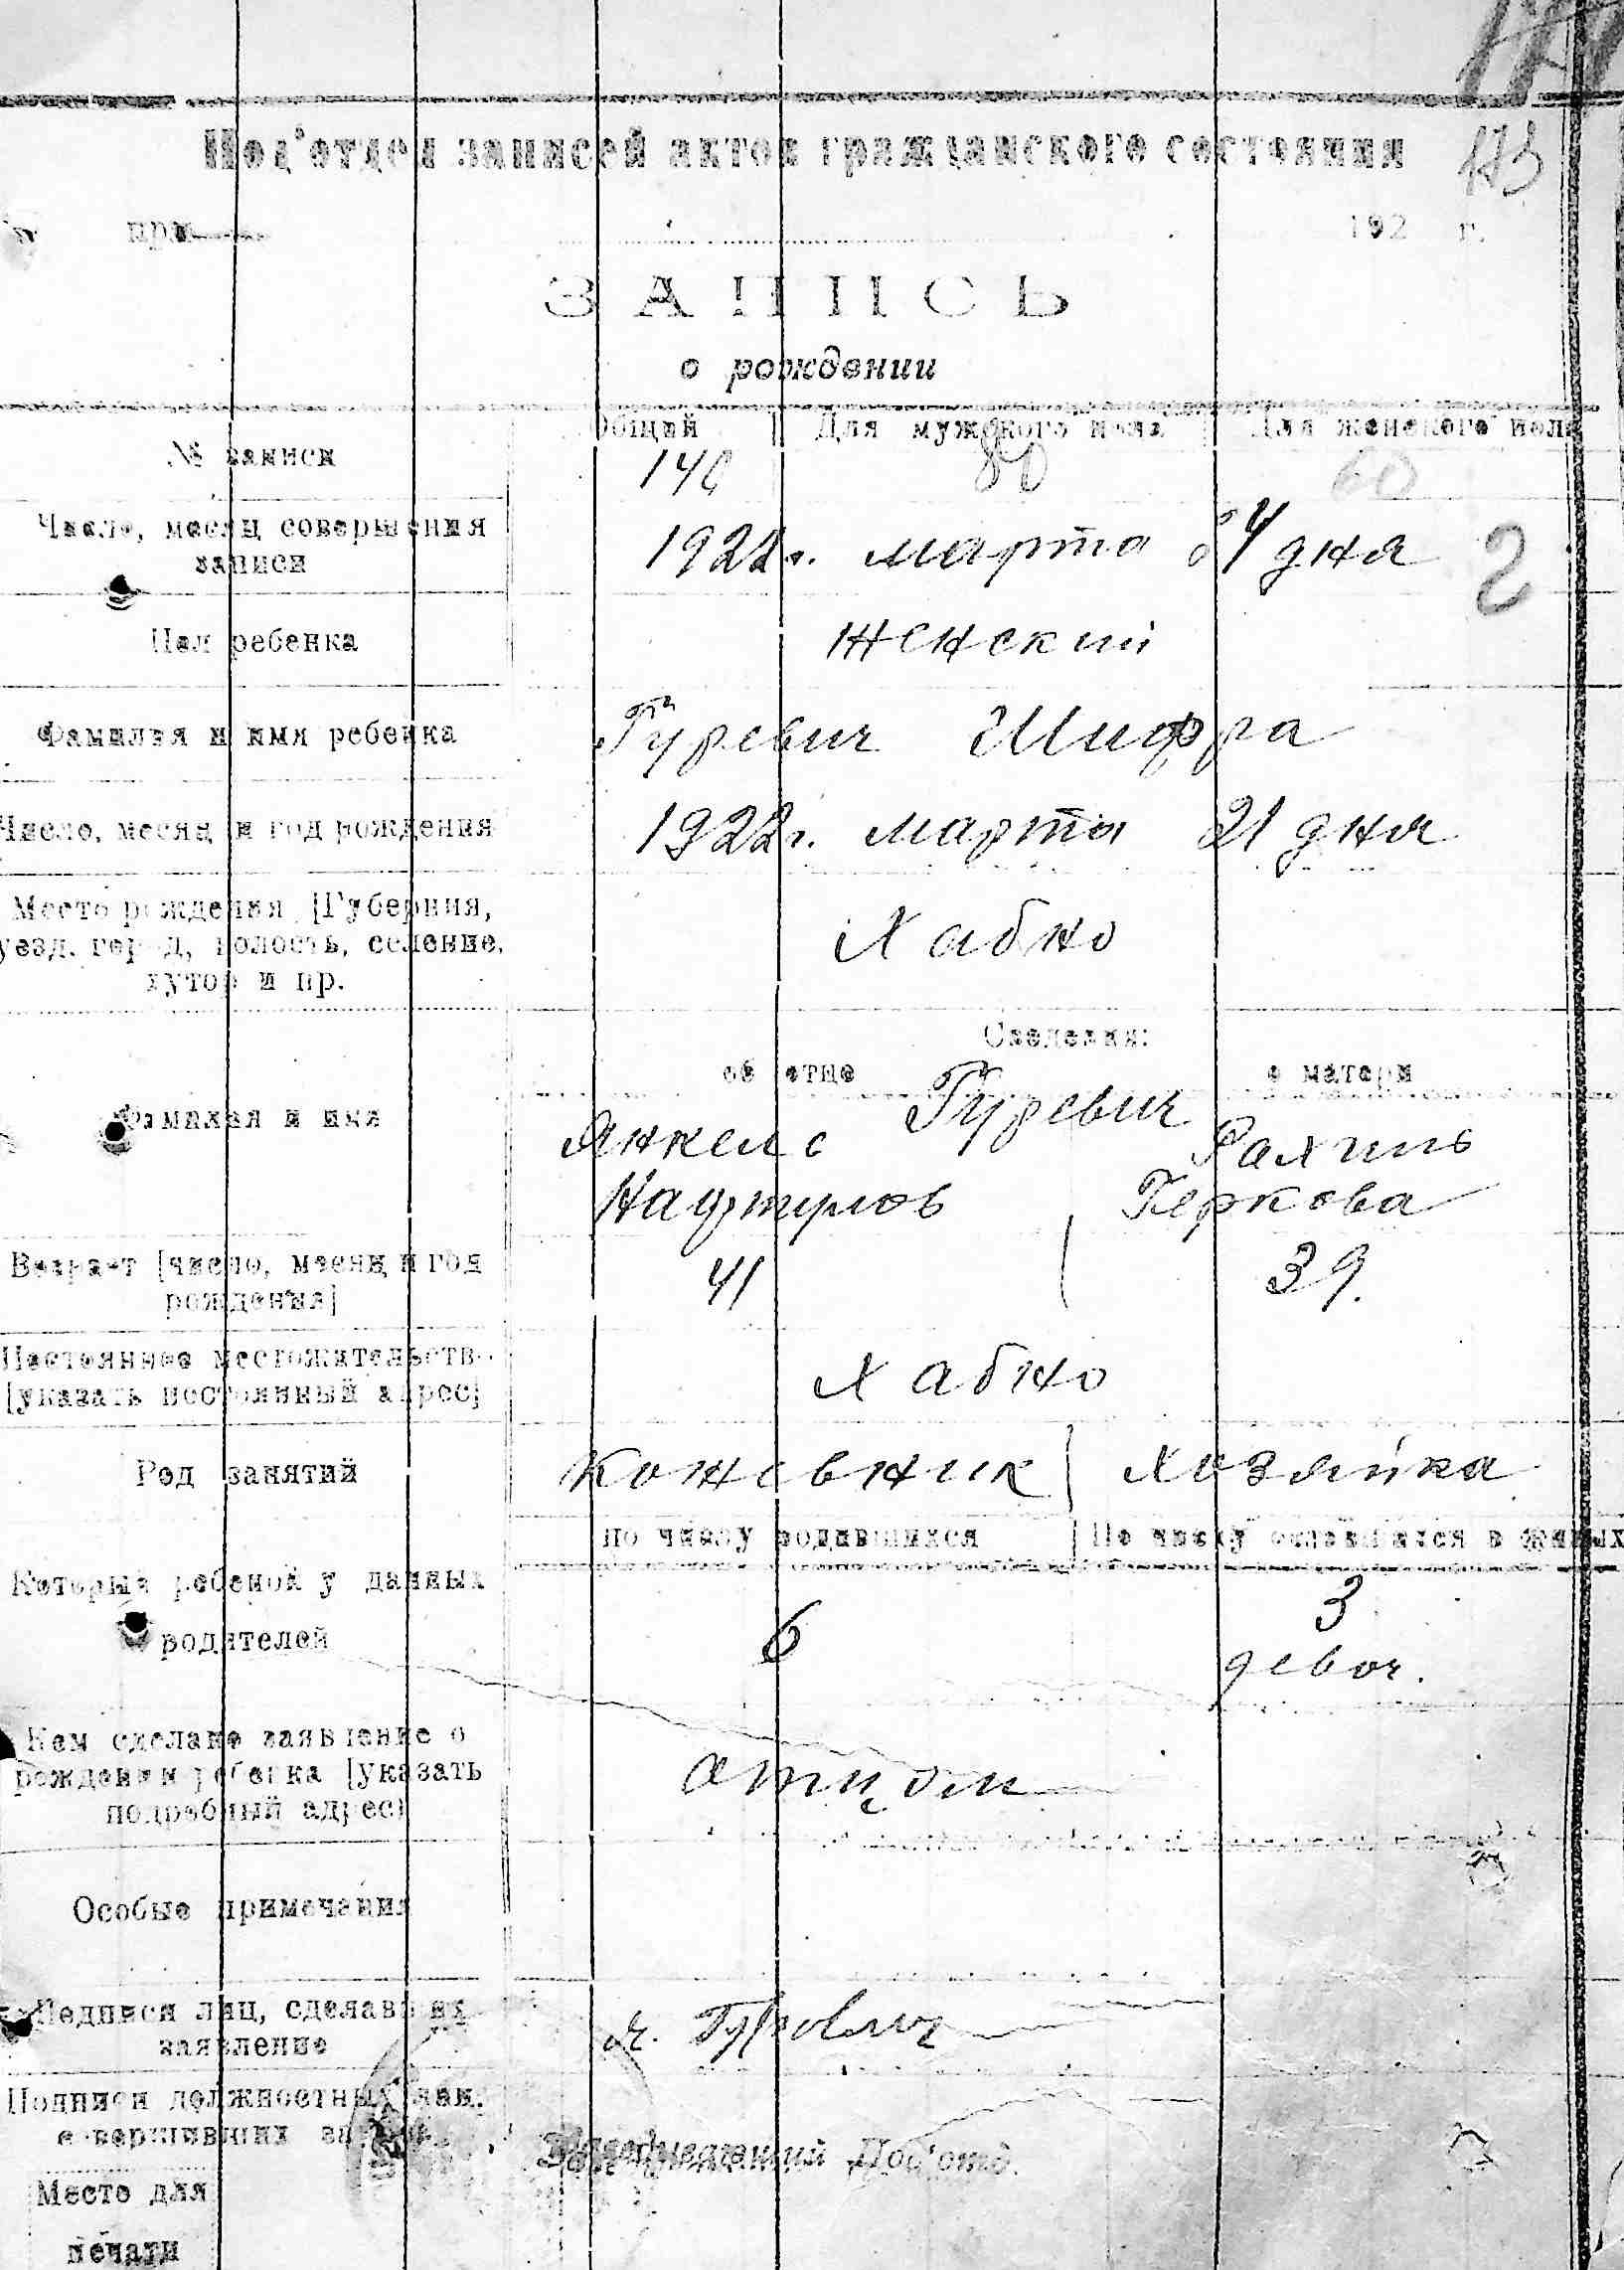 Под'отдел записей актов гражданского состояния
173
при
192 г.
ЗАПИСЬ
о рождении
№ записи
Общий Для мужского пола Для женского пола
80 60
Число, месяц совершения записи
1922 г. марта дня
2
Пол ребенка
Женский
Фамилия и имя ребенка
Гуревич Шифра
Число, месяц и год рождения
1922 г. марта 21 дня
Место рождения [Губерния,
уезд, город, волость, селение,
хутор и пр.
Хабно
Сведения:
об отце о матери
Фамилия и имя
Гуревич
Янкель Рахиль
Нафтулов Геркова
Возраст [число, месяц и год
рождения]
41 39.
Постоянное местожительство
[указать постоянный адрес]
Хабно
Род занятий
Кожевник Хозяйка
По числу родившихся По числу оставшихся в живых
Которым ребенок у данных
родителей
6 3
девоч.
Кем сделано заявление о
рождении ребенка [указать
подробный адрес]
отцом
Особые примечания
Подписи лиц, сделавших
заявление
Я. Гуревич
Подписи должностных лиц,
совершивших запись
Заведывающий Под'отд.
Место для
печати